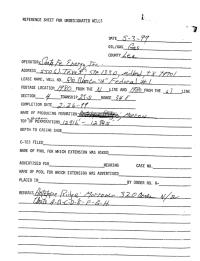 REFERENCE SHEET FOR UNDESIGNATED WELLS
DATE 5-3-99
OIL/GAS Gas
COUNTY Lea
OPERATOR Santa Fe Energy Inc.
ADDRESS 550 W. Texas Ste 1330, Midland, TX 79701
LEASE NAME, WELL NO. "A" Federal #1
FOOTAGE LOCATION 1980 FROM THE N LINE AND 1980 FROM THE LINE
SECTION 4 TOWNSHIP 23-S RANGE 34E
COMPLETION DATE 2-26-99
NAME OF PRODUCING FORMATION Morrow
TOP OF PERFORATIONS
DEPTH TO CASING SHOE
C-123 FILED
NAME OF POOL FOR WHICH EXTENSION WAS ASKED
ADVERTISED FOR HEARING CASE NO.
NAME OF POOL FOR WHICH EXTENSION WAS ADVERTISED
PLACED IN BY ORDER NO. R-
REMARKS Antelope Ridge; Morrow 320 acres N/2
Units A-B-C-D-E-F-G-H